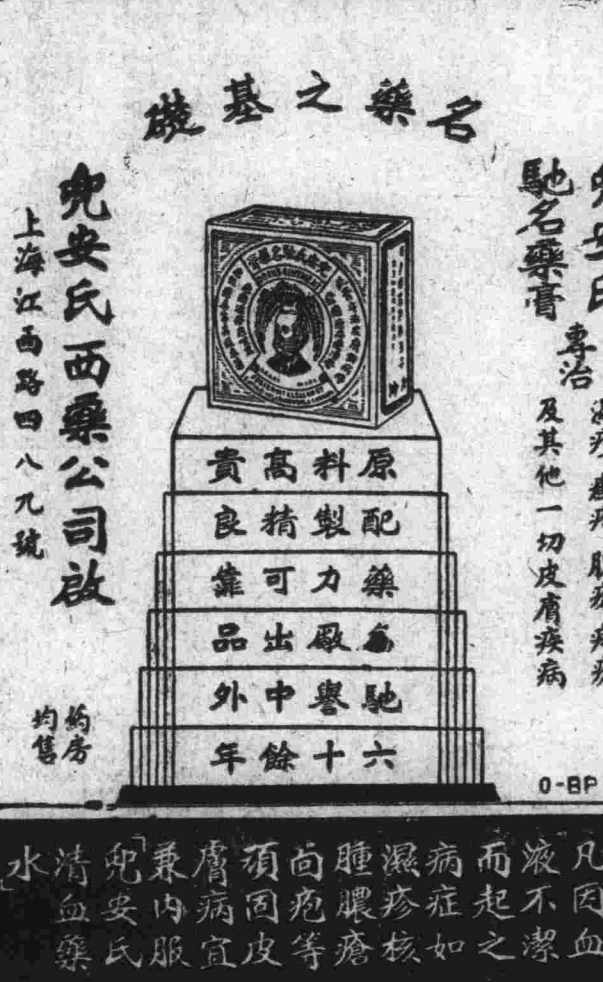 名藥之基礎
兜安氏
馳名藥膏
專治
及其他一切皮膚疾病
原料高貴
配製精良
藥力可靠
廠出品
馳譽中外
六十餘年
兜安氏西藥公司啟
上海江西路四八九號
葯房
均售
O-BP
凡因血
液不潔
而起之
病症如
濕疹核
腫膿瘡
尚疤等
頑固皮
膚病宜
兼內服
「兜安氏
清血藥
水」